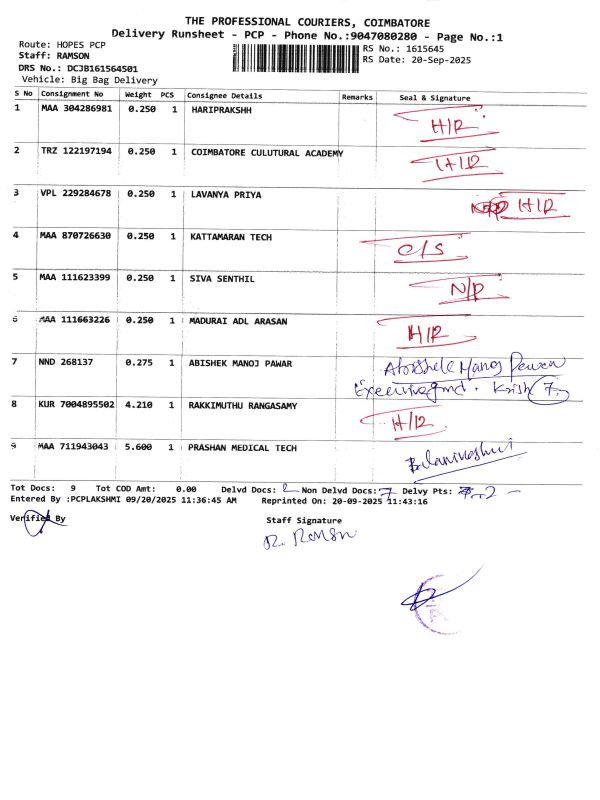 THE PROFESSIONAL COURIERS, COIMBATORE
Delivery Runsheet - PCP - Phone No.:9047080280 - Page No.:1
Route: HOPES PCP RS No.: 1615645
Staff: RAMSON RS Date: 20-Sep-2025
DRS No.: DCJB161564501
Vehicle: Big Bag Delivery
S No Consignment No Weight PCS Consignee Details Remarks Seal & Signature
1 MAA 304286981 0.250 1 HARIPRAKSHH H/R
2 TRZ 122197194 0.250 1 COIMBATORE CULUTURAL ACADEMY H/R
3 VPL 229284678 0.250 1 LAVANYA PRIYA H/R
4 MAA 870726630 0.250 1 KATTAMARAN TECH O/S
5 MAA 111623399 0.250 1 SIVA SENTHIL N/P
6 MAA 111663226 0.250 1 MADURAI ADL ARASAN H/R
7 NND 268137 0.275 1 ABISHEK MANOJ PAWAR Abishek Manoj Pawar
8 KUR 7004895502 4.210 1 RAKKIMUTHU RANGASAMY H/R
9 MAA 711943043 5.600 1 PRASHAN MEDICAL TECH
Tot Docs: 9 Tot COD Amt: 0.00 Delvd Docs: 2 Non Delvd Docs: 7 Delvy Pts: 2
Entered By :PCPLAKSHMI 09/20/2025 11:36:45 AM Reprinted On: 20-09-2025 11:43:16
Verified By Staff Signature
R. Ramson